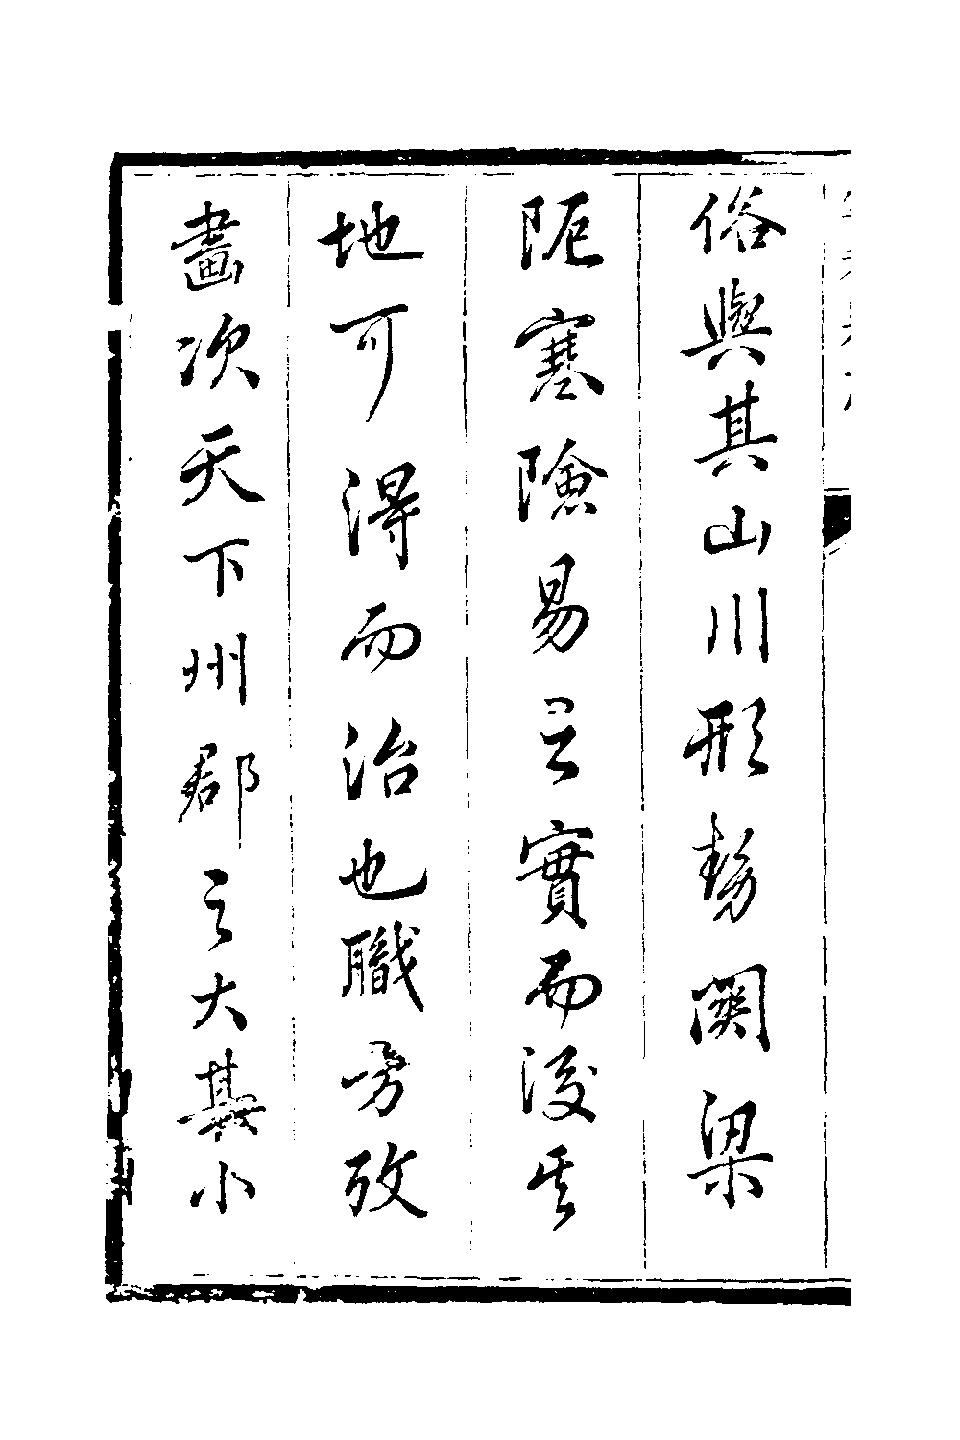 俗與其山川形勢関梁
阨塞險易之實而後其
地可得而治也職方攷
畫次天下州郡之大其小